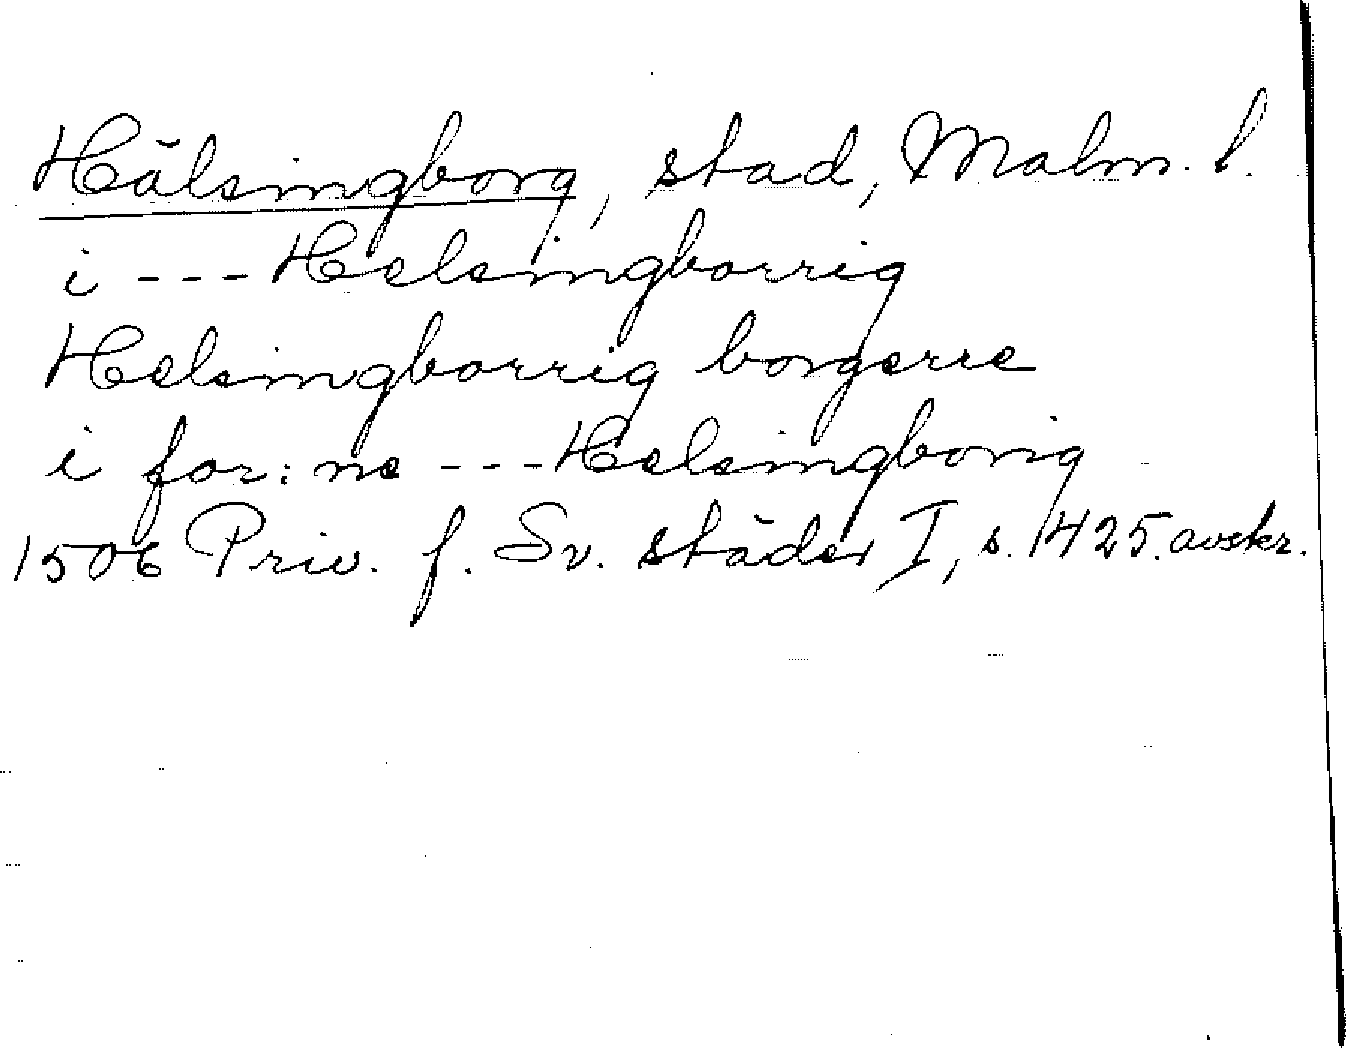 Hälsingborg, stad, Malm. l.
i --- Helsingborrig
Helsingborrig borgerre
i for: ne --- Helsingborig
1506 Priv. f. Sv. städer I, s. 425. avskr.